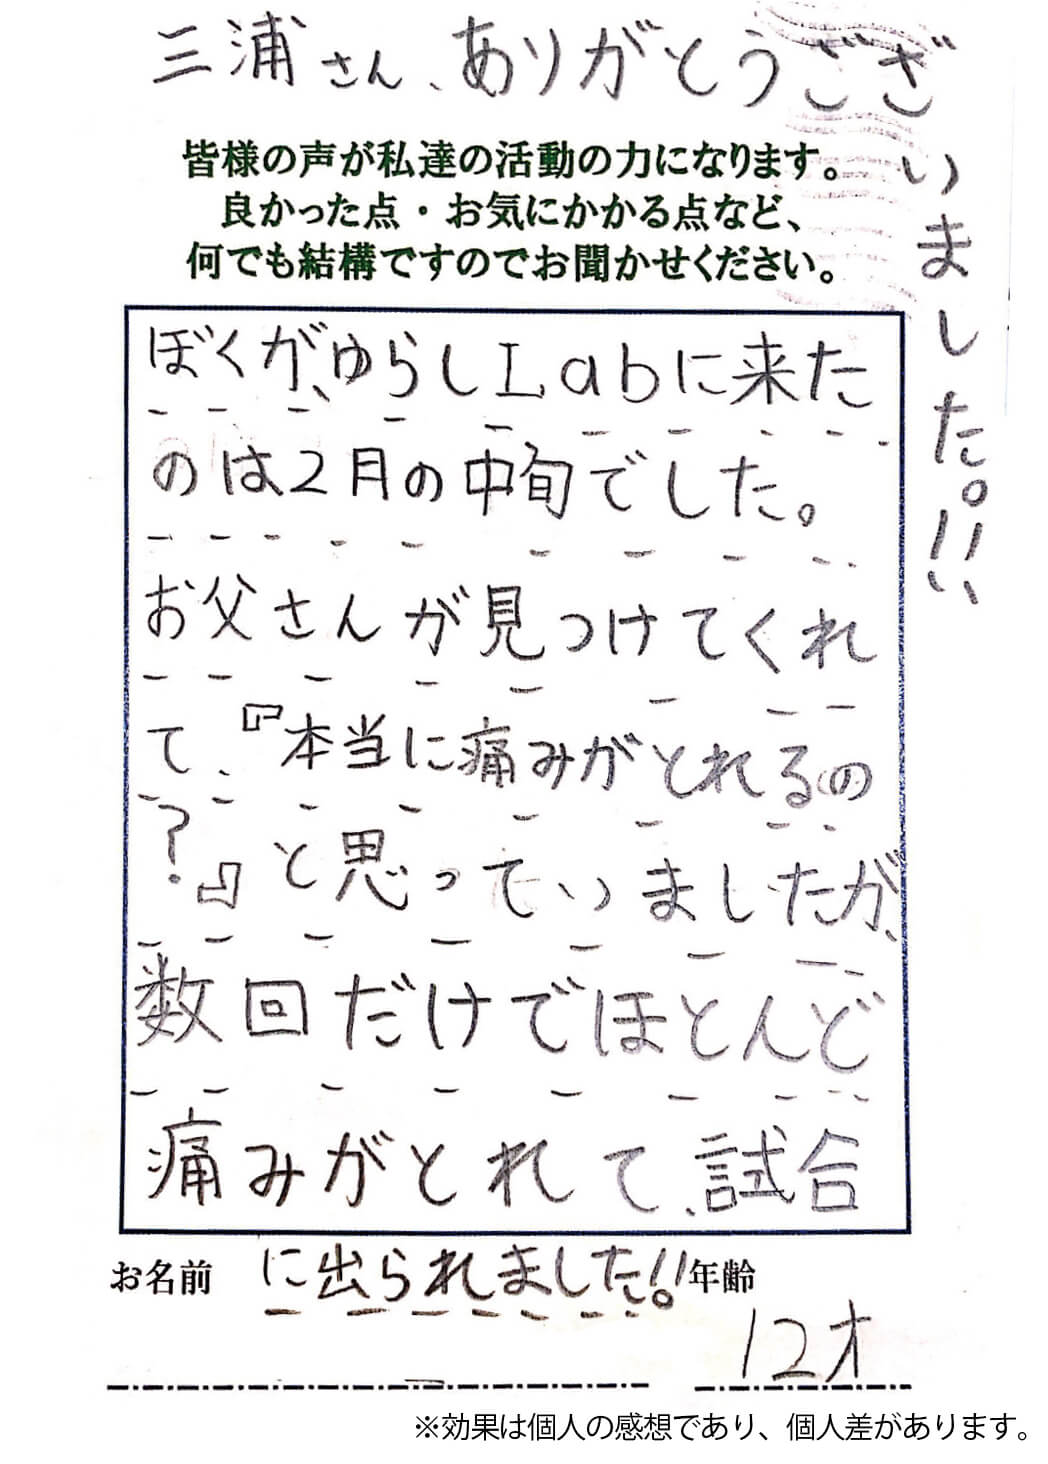 三浦さん、ありがとうございました。!!
皆様の声が私達の活動の力になります。
良かった点・お気にかかる点など、
何でも結構ですのでお聞かせください。
ぼくが、ゆらしLabに来た
のは2月の中旬でした。
お父さんが見つけてくれ
て、『本当に痛みがとれるの
?』と思っていましたが、
数回だけでほとんど
痛みがとれて、試合
に出られました!!。
お名前 年齢
12才
※効果は個人の感想であり、個人差があります。